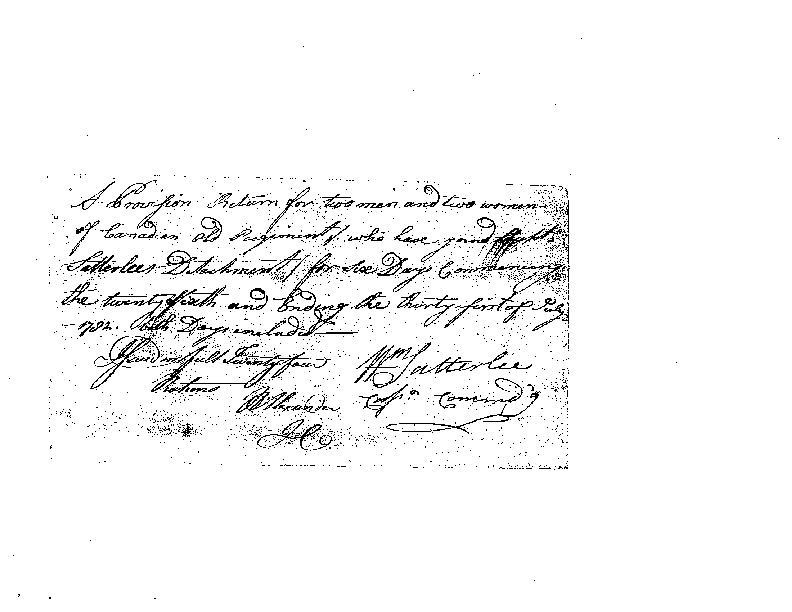 A Provision Return for two men and two women
of Canadian Old Regiment / who have joind Capt
Satterlees Detachment / for six Days Commencing
the twenty sixth and Ending the thirty first of July
1782. both Days included
Issued in full Twenty four
Rations
Wm Satterlee
Capn Commdg
Alexander
I C